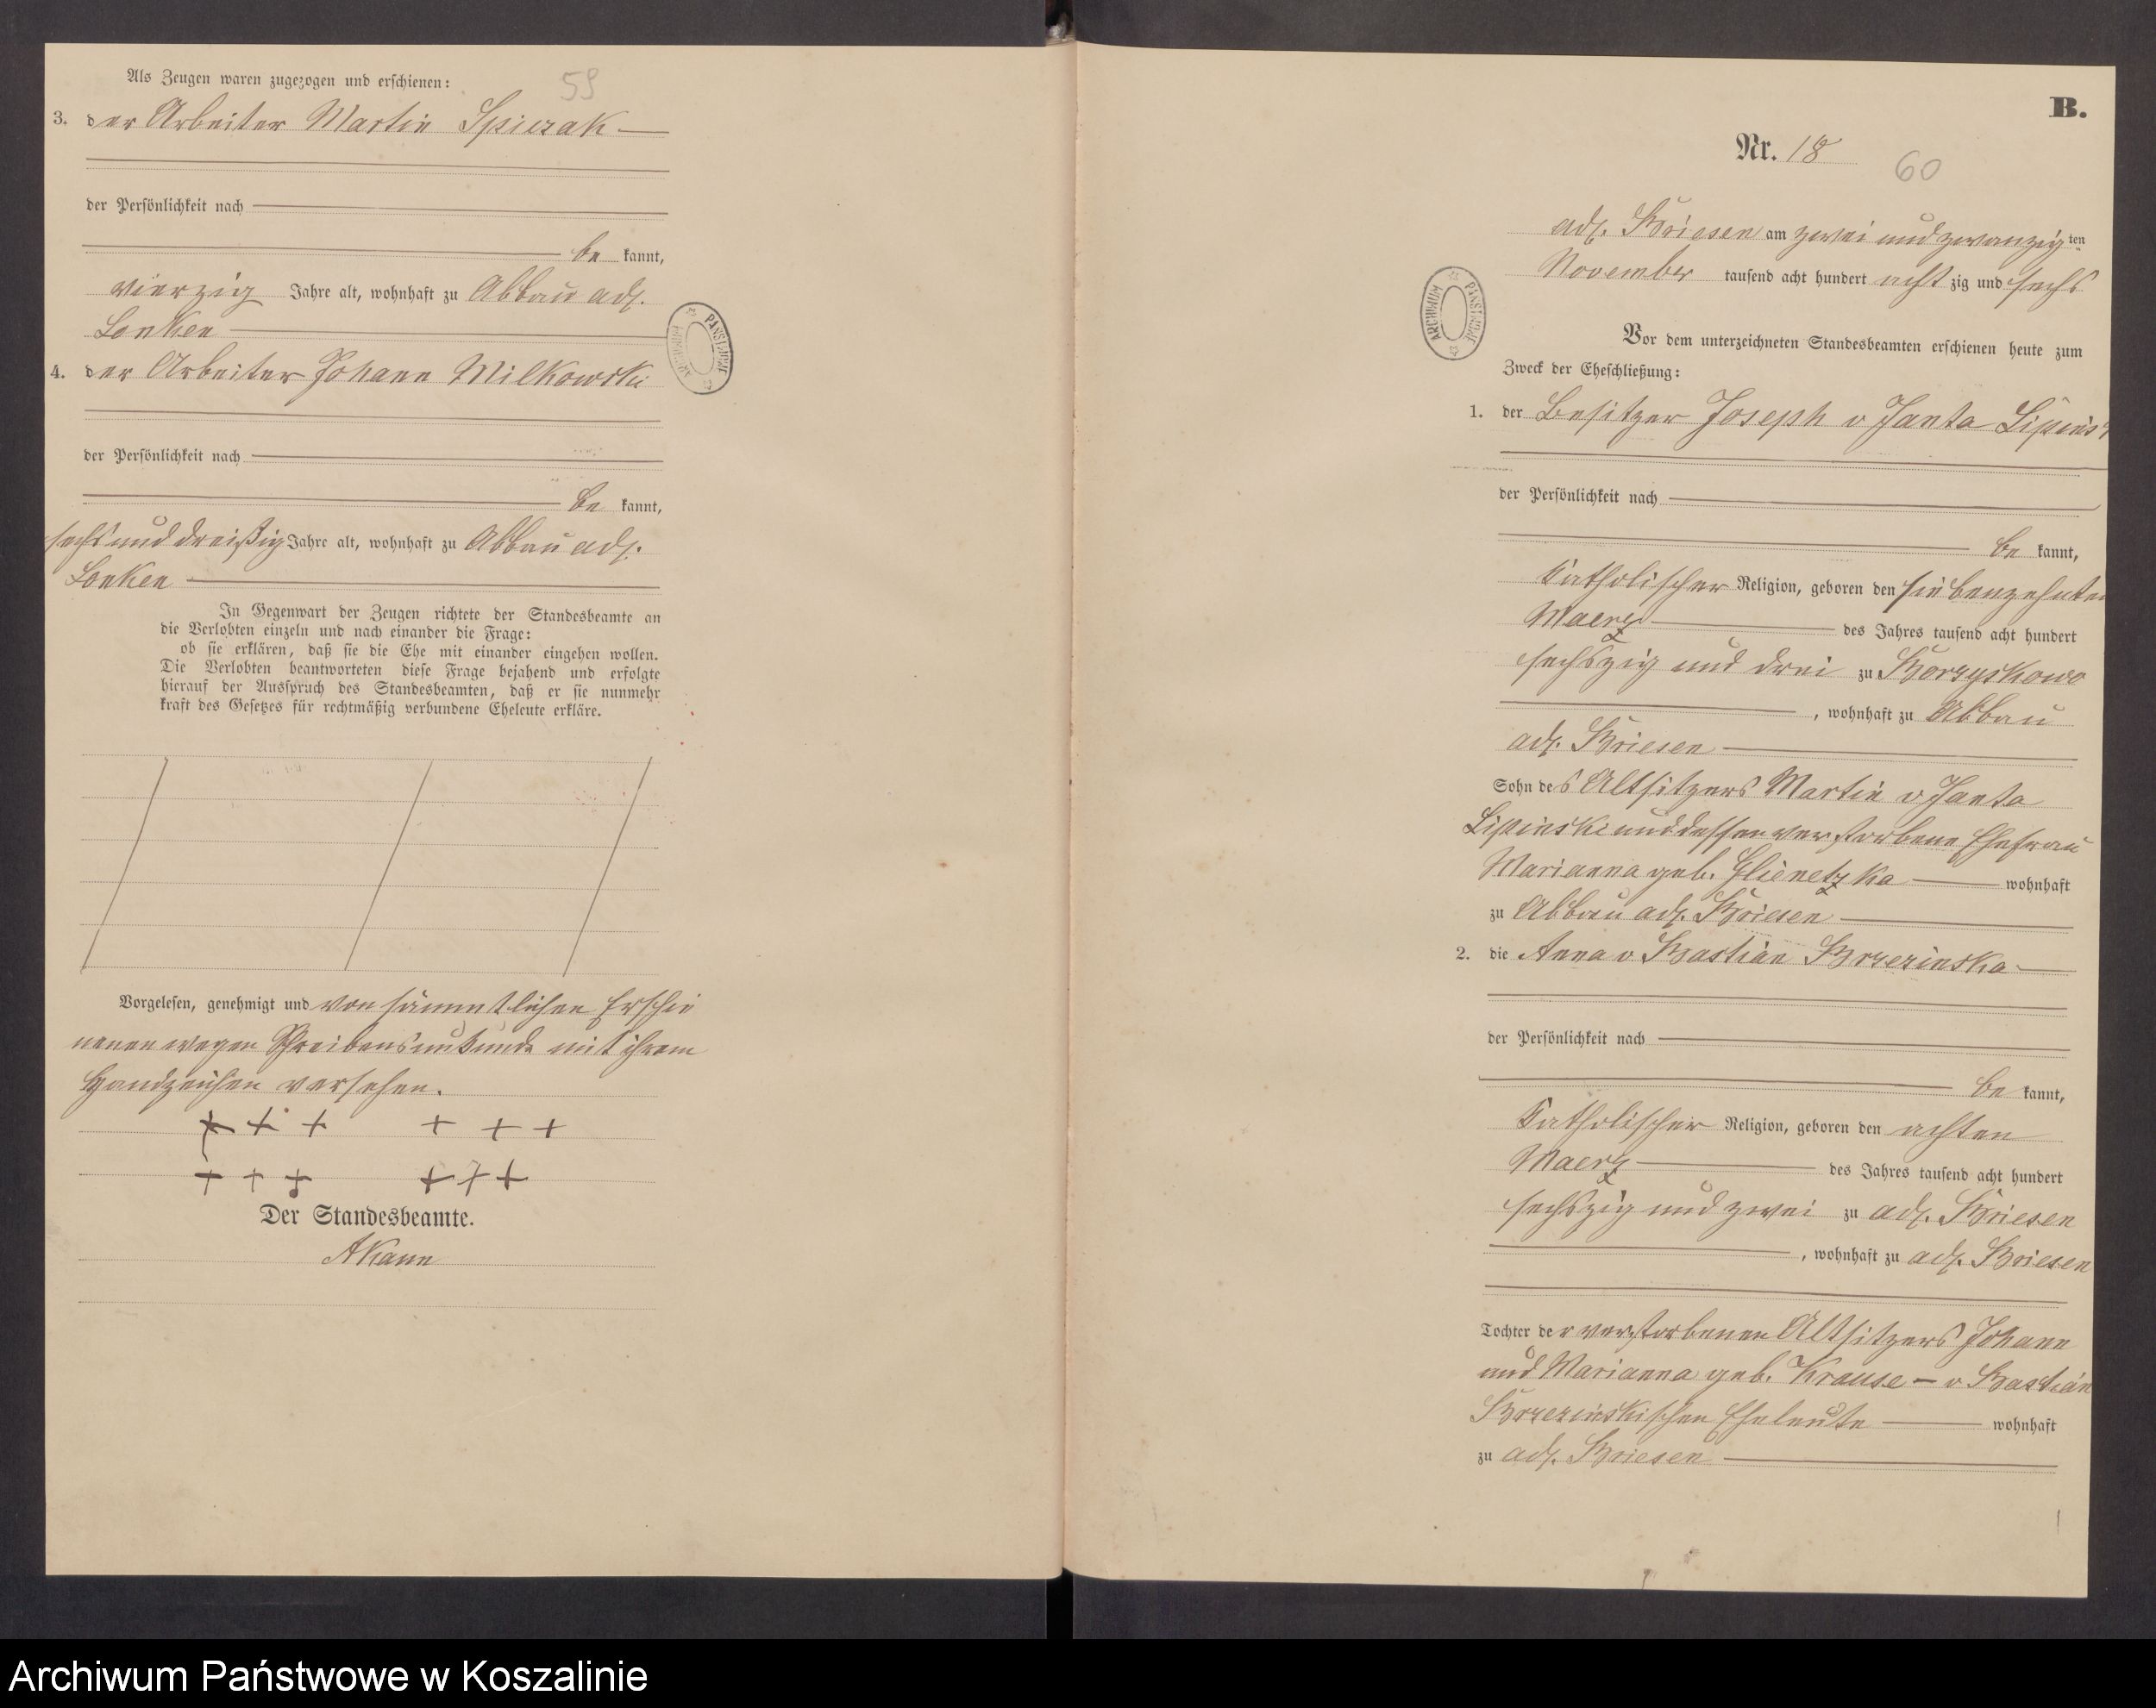 Als Zeugen waren zugezogen und erschienen:
59
3. der Arbeiter Martin Spiczak
der Persönlichkeit nach
be kannt,
vierzig Jahre alt, wohnhaft zu Abbau adl.
Lonken
4. der Arbeiter Johann Milkowski
der Persönlichkeit nach
be kannt,
sechsunddreißig Jahre alt, wohnhaft zu Abbau adl.
Lonken
In Gegenwart der Zeugen richtete der Standesbeamte an
die Verlobten einzeln und nach einander die Frage:
ob sie erklären, daß sie die Ehe mit einander eingehen wollen.
Die Verlobten beantworteten diese Frage bejahend und erfolgte
hierauf der Ausspruch des Standesbeamten, daß er sie nunmehr
kraft des Gesetzes für rechtmäßig verbundene Eheleute erkläre.
Vorgelesen, genehmigt und von sämmtlichen Erschie
nenen wegen Schreibensunkunde mit ihrem
Handzeichen versehen.
+ + + + + +
+ + + + + +
Der Standesbeamte.
AKann
ARCHIWUM PAŃSTWOWE
B.
Nr. 18
60
adl. Briesen am zwei und zwanzig ten
November tausend acht hundert acht zig und sechs
ARCHIWUM PAŃSTWOWE
Vor dem unterzeichneten Standesbeamten erschienen heute zum
Zweck der Eheschließung:
1. der Besitzer Joseph v Janta Lipinsk
der Persönlichkeit nach
be kannt,
katholischer Religion, geboren den siebenzehnten
Maerz des Jahres tausend acht hundert
sechszig und drei zu Borzyskowo
, wohnhaft zu Abbau
adl. Briesen
Sohn des Altsitzers Martin v Janta
Lipinski und dessen verstorbene Ehefrau
Marianna geb. Glienetzka wohnhaft
zu Abbau adl. Briesen
2. die Anna v Bastian Brzezinska
der Persönlichkeit nach
be kannt,
katholischer Religion, geboren den achten
Maerz des Jahres tausend acht hundert
sechszig und zwei zu adl. Briesen
, wohnhaft zu adl. Briesen
Tochter der verstorbenen Altsitzers Johann
und Marianna geb. Krause - v Bastian
Brzezinskischen Eheleute wohnhaft
zu adl. Briesen
Archiwum Państwowe w Koszalinie